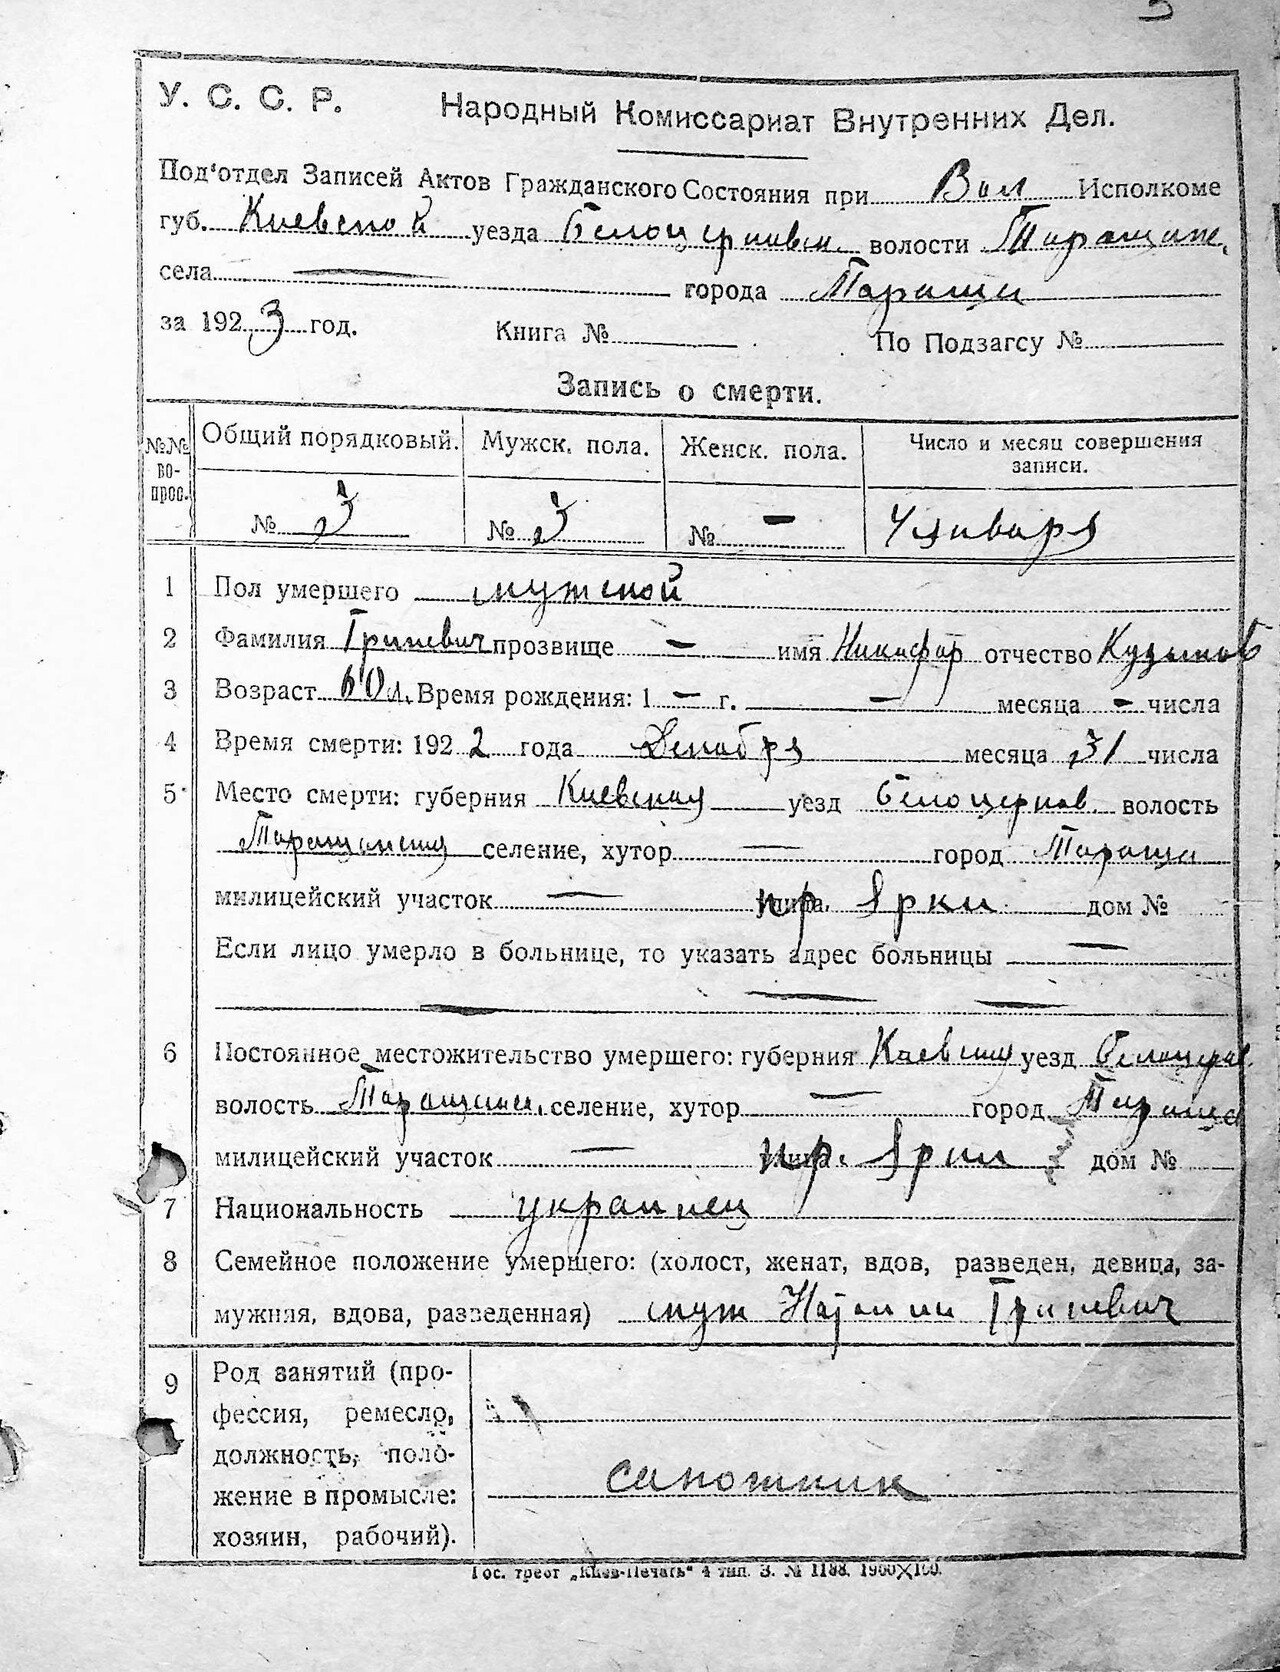 У. С. С. Р. Народный Комиссариат Внутренних Дел.
Под'отдел Записей Актов Гражданского Состояния при Вол Исполкоме
губ. Киевской уезда Белоцерковск. волости Таращанс.
села — города Таращи
за 1923 год. Книга № По Подзагсу №
Запись о смерти.
№№ вопрос. Общий порядковый. Мужск. пола. Женск. пола. Число и месяц совершения записи.
№ 3 № 3 № — 4 января
1 Пол умершего мужской
2 Фамилия Гриневич прозвище — имя Никифор отчество Кузьмов
3 Возраст 60 л. Время рождения: 1 — г. — месяца — числа
4 Время смерти: 1922 года Декабря месяца 31 числа
5 Место смерти: губерния Киевская уезд Белоцерков. волость
Таращанская селение, хутор — город Тараща
милицейский участок — улица. пр. Ярки дом №
Если лицо умерло в больнице, то указать адрес больницы —
— — —
6 Постоянное местожительство умершего: губерния Киевская уезд Белоцерков.
волость Таращанск. селение, хутор — город Тараща
милицейский участок — улица. пр. Ярки дом №
7 Национальность украинец
8 Семейное положение умершего: (холост, женат, вдов, разведен, девица, за-
мужняя, вдова, разведенная) муж Наталии Гриневич
9 Род занятий (про-
фессия, ремесло,
должность, поло-
жение в промысле:
хозяин, рабочий).
сапожник
Гос. трест „Киев-Печать" 4 тип. З. № 1188. 1900×100.